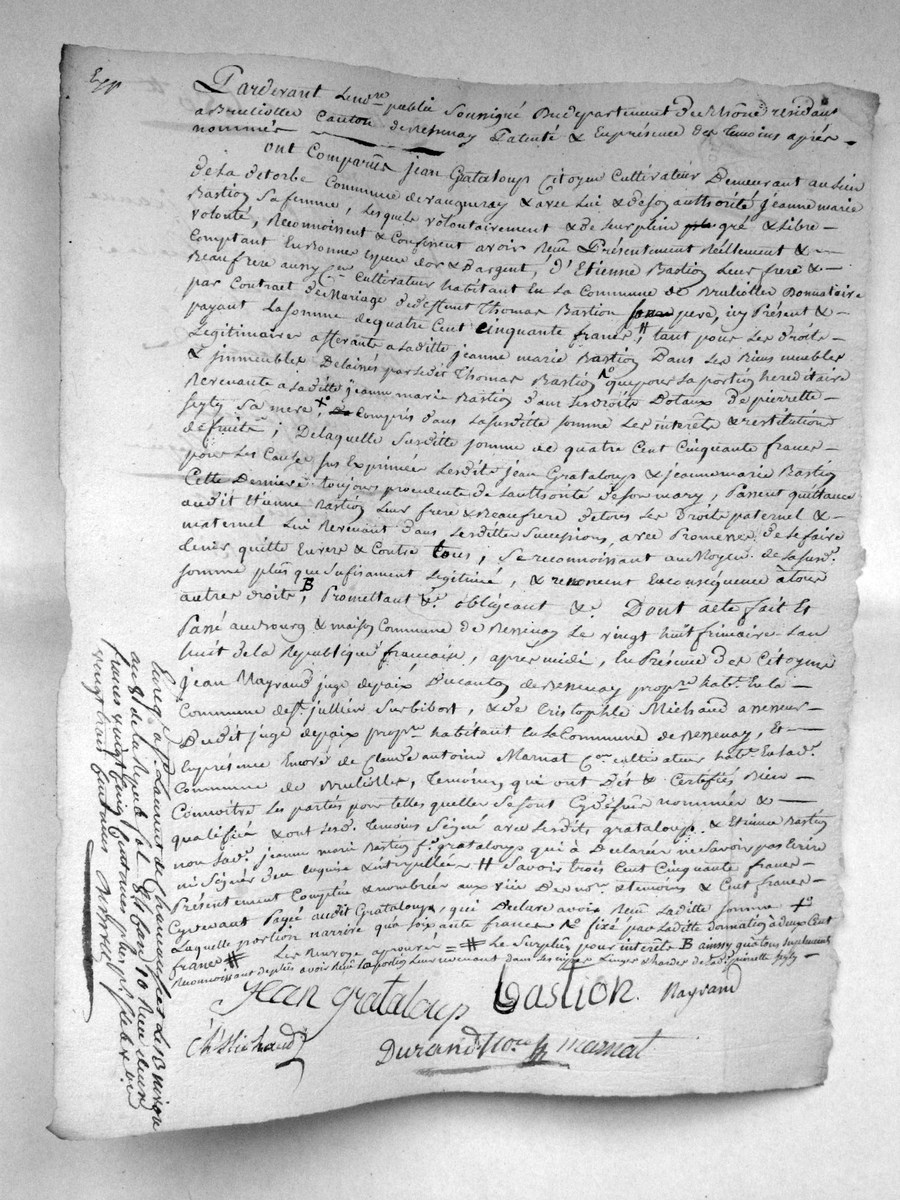 Exp.
Pardevant Le no.re public Soussigné Du departement du Rhône residant
a Brulliolle Canton de Bessenay Patenté & En presence des temoins après
nommés
ont Comparûs jean Grataloup Citoyen Cultivateur Demeurant au Lieu
de La detorbe Commune de vaugneray & avec Lui & de son authorité jeanne marie
Bastion Sa femme, Lesquels volontairement & de Leur plein gré & Libre
volonté, Reconnoissent & Confessent avoir Reçu Présentement Réellement &
Comptant En Bonne Espece d'or & d'argent, d'Etienne Bastion Leur frere &
Beaufrere aussy C.en Cultivateur habitant En La Commune de Brulliolles Donnataire
par Contract de Mariage dudeffunt Thomas Bastion pere, icy Présent &
payant La somme de quatre Cent Cinquante francs # tant pour Les Droits
Légitimaires afferants a Laditte jeanne marie Bastion Dans Les Biens meubles
& jmmeubles Delaissés par Ledit Thomas Bastion que pour La portion hereditaire
Revenante a Laditte jeanne marie Bastion dans Les Droits Dotaux de pierrette
Sa mere, Compris dans La susditte somme Les interêts & restitution
de fruits; De laquelle Susditte somme de quatre Cent Cinquante francs
pour Les Causes sus Exprimées Lesdits jean Grataloup & jeanne marie Bastion
Cette Derniere toujours procedente de Lauthorité de son mary, Passent quittance
audit Etienne Bastion Leur frere & Beaufrere de tous Les Droits paternel &
maternel Lui Revenant dans Lesdittes Successions, avec Promesse de Le faire
tenir quitte Envers & Contre tous; Se reconnoissant au Moyen de La susd.
somme plus que Sufisament Légitimée, & renoncent En conséquence à tous
autres droits B, Promettant &c obligeant &c Dont acte fait Et
Passé au Bourg & maison Commune de Bessenay Le vingt huit frimaire Lan
huit de La Republique française, après midi, En Présence des Citoyens
jean Nayrand juge de paix Du Canton de Bessenay propr.e habt. En La
Commune de St. jullien Sur bibost, & de Cristophle Michaud assesseur
Dudit juge de paix propr.e habitant En La Commune de Bessenay, Et
En présence Encore de Claude antoine Marnat C.en cultivateur habt. En Lad.
Commune de Brulliolles, temoins, qui ont Dit & Certifiés Bien
Connoître Les parties pour telles quelles Se sont Cydessus nommées &
qualifié & ont Lesd. temoins Signé avec Lesdits grataloup & Etienne Bastion
non Lad. jeanne marie Bastion f.e grataloup qui à Déclarée ne Savoir pas Ecrire
ni Signer de ce Enquise & interpellée # Savoir trois Cent Cinquante francs
Présentement Comptés & nombrées aux vûe Des no.re & temoins & Cent francs
Cydevant Payé audit Grataloup, qui Declare avoir Reçu Laditte somme
Laquelle portion narrive qua soix ante francs fixé par Laditte donnation à deux Cent
francs # Les Renvoys approuvés = # Le Surplus pour interêts B ainsy qua tous suplement
Reconnoissant de plus avoir Reçu La portion Leur revenant dans Les linges & hardes de Lad. pierrette
jean grataloup Bastion. Nayrand
Ch. Michaud Durand No.re marnat
Enreg. a St. Laurent de Chamousset Les 3 nivose
an 8 de La Repub. fol. 81 Vo Case 10 Reçu
francs vingt Cinq Centimes plus pr Subv.
vingt trois Centimes